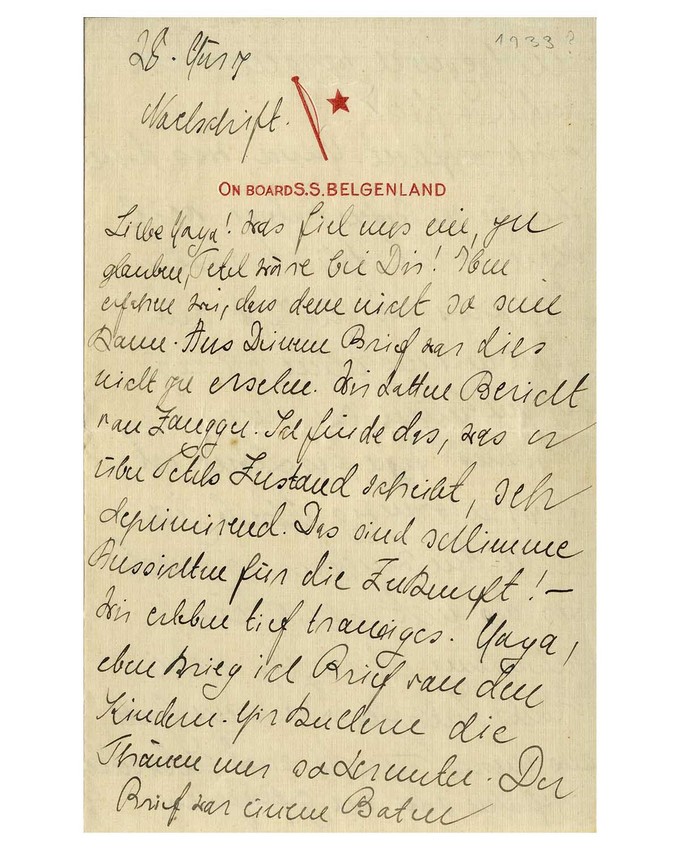 1933?
28. März
Nachschrift.
ON BOARD S.S. BELGENLAND
Liebe Maja! Was fiel uns ein, zu
glauben, Tetel wäre bei Dir! Eben
erfahren wir, dass dem nicht so sein
kann. Aus Deinem Brief war dies
nicht zu ersehen. Wir hatten Bericht
von Zangger. Ich finde das, was er
über Tetels Zustand schreibt, sehr
deprimirend. Das sind schlimme
Aussichten für die Zukunft! –
Wir erleben tief trauriges. Maja,
eben krieg ich Brief von den
Kindern. Mir kullern die
Thränen nur so herunter. Der
Brief war einem Boten